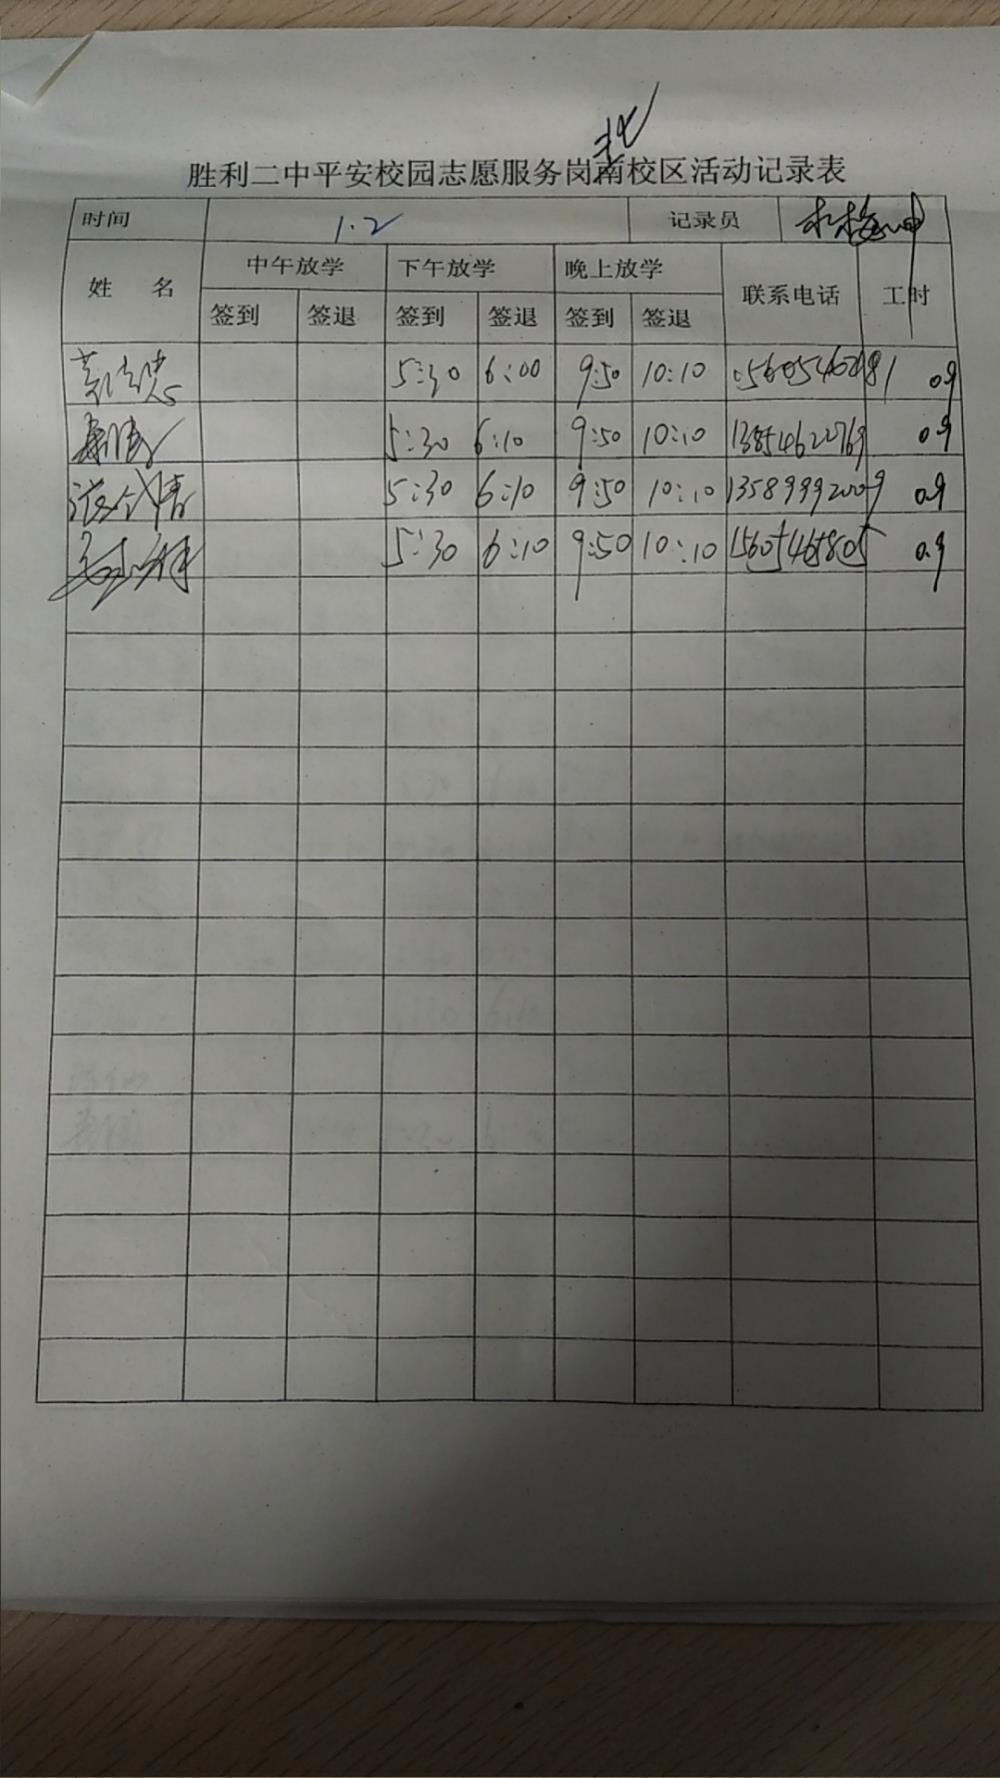 北
胜利二中平安校园志愿服务岗南校区活动记录表
时间 1.2 记录员
姓 名 中午放学 下午放学 晚上放学 联系电话 工时
签到 签退 签到 签退 签到 签退
5:30 6:00 9:50 10:10 0.9
5:30 6:10 9:50 10:10 13854622769 0.9
5:30 6:10 9:50 10:10 13589992009 0.9
5:30 6:10 9:50 10:10 15605465805 0.9